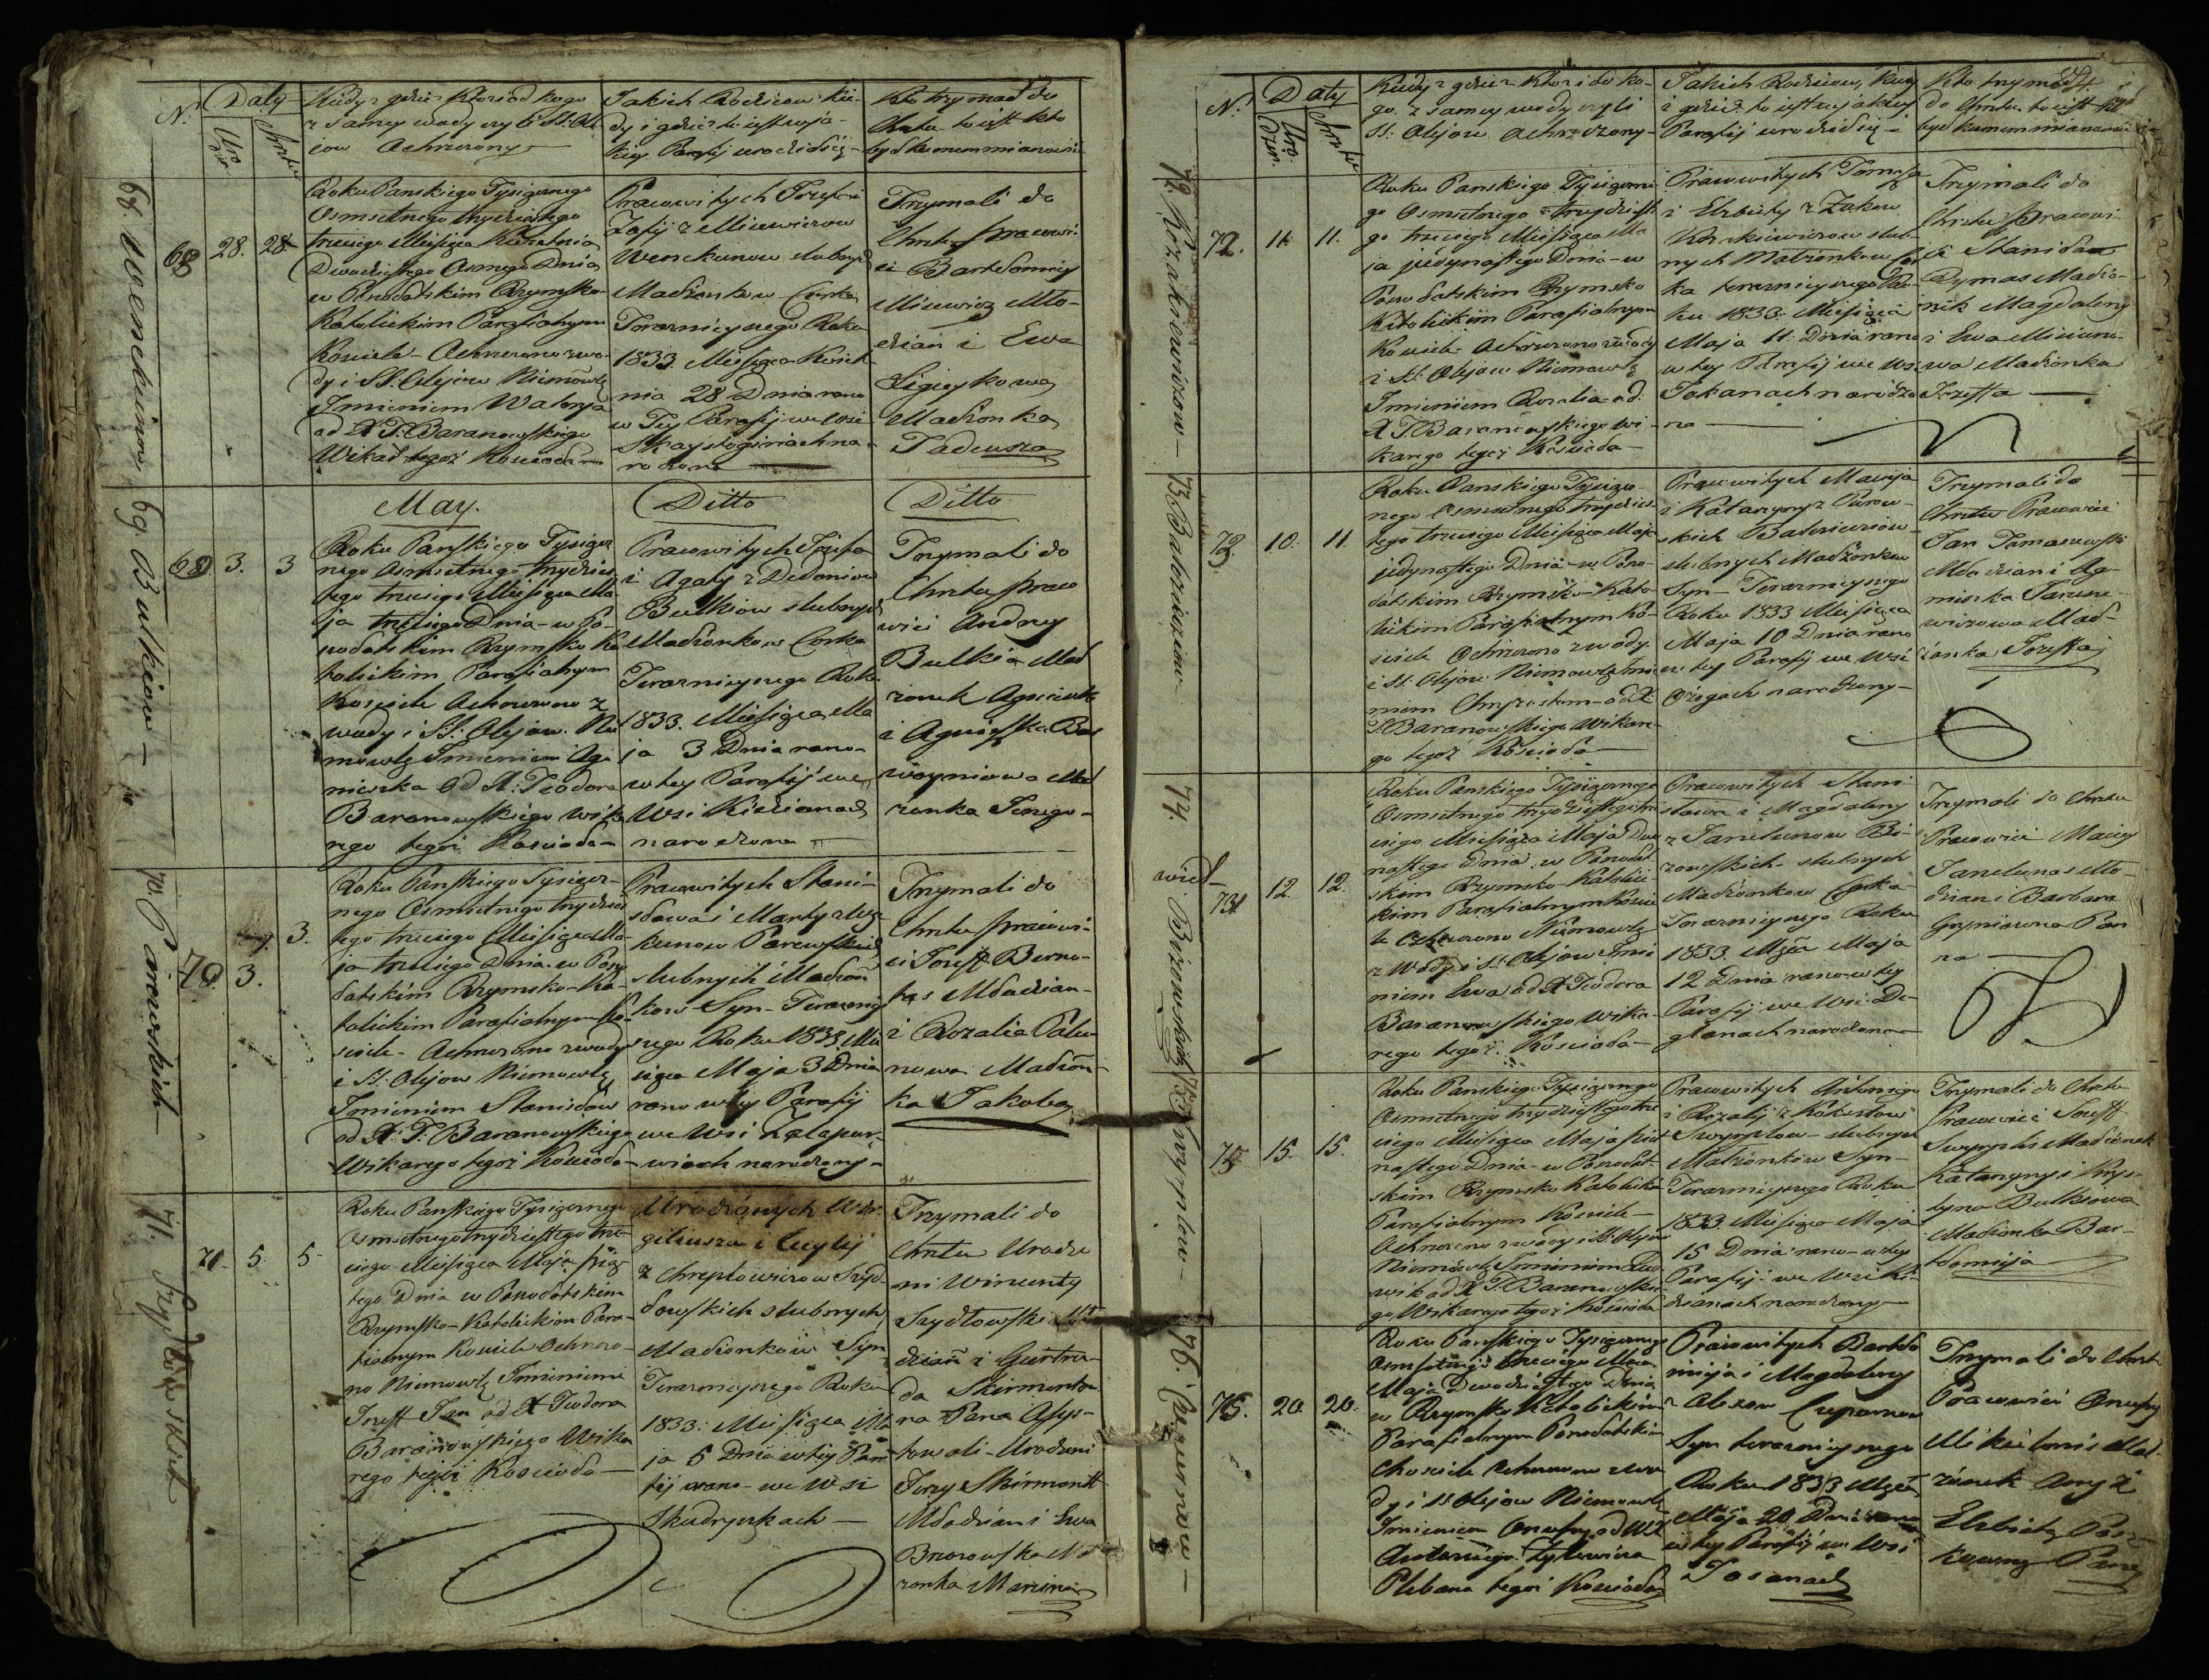 N.
Daty
Uro
dzin
Chrztu
Kiedy i gdzie Ktos od kogo
z samey wody czy li SS. Ole
iow Ochrzczony
Jakich Rodzicow kie-
dy i gdzie to iest w ja-
kiey Parafij urodził się
Kto trzymał do
Chrztu to iest kto
był kumem mianowicie
68. Wenckunow
68
28.
28
Roku Panskiego Tysiącznego
Osmsetnego trzydziestego
trzeciego Miesiąca Kwietnia
Dwudziestego Osmego Dnia
w Poszodatskim Rzymsko
Katolickim Parafialnym
Kosciele Ochrzczono z wo-
dy i SS. Olejow Niemowle
Imieniem Waleryą
od X. T. Baranowskiego
Wikar. tegoż Koscioła
Pracowitych Jozefa i
Zofij z Micewiczow
Wenckunow slubnych
Małżonkow Corka
Terazniejszego Roku
1833. Miesiąca Kwiet
nia 28 Dnia rano
w Tey Parafij we Wsi
na-
rodzona
Trzymali do
Chrztu Pracowi-
ci Bartłomiey
Micewicz Mło-
dzian i Ewa
Ligieykowa
Małżonka
Tadeusza
May.
Ditto
Ditto
69. Bulkiow
69.
3.
3
Roku Panskiego Tysiącz
nego Osmsetnego trzydzies
tego trzeciego Miesiąca Ma
ja trzeciego Dnia w Po-
szodatskim Rzymsko Ka
tolickim Parafialnym
Kosciele Ochrzczono z
wody i SS. Olejow Nie
mowle Imieniem Agni
nieszka od X. Teodora
Baranowskiego Wika
rego tegoż Koscioła
Pracowitych Jozefa
i Agaty z Dedoniow
Bulkiow slubnych
Małżonkow Corka
Terazniejszego Roku
1833. Miesiąca Ma
ja 3 Dnia rano
w tey Parafij we
Wsi Kiedzianach
narodzona
Trzymali do
Chrztu Praco
wici Andrzey
Bulkia Mał
żonek Agnieszki
i Agnieszka
Mał
żonka Jerzego
70. Parewskich
70.
3.
3.
Roku Panskiego Tysiącz-
nego Osmsetnego trzydzies
tego trzeciego Miesiąca Ma-
ja trzeciego Dnia w Posz
odatskim Rzymsko-Ka-
tolickim Parafialnym Ko-
sciele Ochrzczono z wody
i SS. Olejow Niemowle
Imieniem Stanisław
od X. T. Baranowskiego
Wikarego tegoż Koscioła
Pracowitych Stani-
sława i Marty z
Parewskich
slubnych Małżon
kow Syn Terazniey
szego Roku 1833. Mie
siąca Maja 3 Dnia
rano w tey Parafij
we Wsi
narodzony
Trzymali do
Chrztu Pracowi-
ci Jozeff Berno-
tas Młodzian
i Rozalia Palu
nowa Małżon-
ka Jakoba
71. Szydłowskich
71.
5.
5
Roku Panskiego Tysiącznego
Osmsetnego trzydziestego trze
ciego Miesiąca Maja pią-
tego Dnia w Poszodatskim
Rzymsko-Katolickim Para-
fialnym Kosciele Ochrzczo-
no Niemowle Imieniem
Jozeff Jan od X. Teodora
Baranowskiego Wika
rego tegoż Koscioła
Urodzonych Wir-
giliusza i Cecylij
z Chreptowiczow Szyd-
łowskich slubnych
Małżonkow Syn
Terazniejszego Roku
1833. Miesiąca Ma
ja 5 Dnia w tey Para
fij rano we Wsi
Skudryszkach
Trzymali do
Chrztu Urodze
ni Wincenty
Szydłowski Mło
dzian i Giertru-
da Skirmontow
na Pana Assys-
towali Urodzeni
Jerzy Skirmontt
Młodzian i Ewa
Brzozowska Mał
żonka Marcina
N.
Daty
Uro
dzin.
Chrztu
Kiedy i gdzie Ktos i od ko-
go z samey wody czyli
SS. Olejow Ochrzczony
Jakich Rodzicow, kiedy
i gdzie to iest w jakiey
Parafij urodził się
Kto trzymał
do Chrztu to iest kto
był kumem mianowicie
72. Kozakiewiczow
72.
11.
11.
Roku Panskiego Tysiączne
go Osmsetnego trzydzieste
go trzeciego Miesiąca Ma
ja jedynastego Dnia w
Poszodatskim Rzymsko
Katolickim Parafialnym
Kosciele Ochrzczono z wody
i SS. Olejow Niemowle
Imieniem Rozalia od
X T. Baranowskiego Wi-
karego tegoż Koscioła
Pracowitych Tomasza
i Elzbiety z Zukow
Kozakiewiczow slub-
nych Małżonkow Cor
ka terazniejszego Ro-
ku 1833. Miesiąca
Maja 11. Dnia rano
w tey Parafij we Wsi
Jokanach narodzo
na
Trzymali do
Chrztu Pracowi-
ci Stanisław
Rymas Małżo-
nek Magdaleny
i Ewa
wa Małżonka
Jozeffa
73. Balcewiczow
73.
10.
11.
Roku Panskiego Tysiącz-
nego Osmsetnego trzydzies-
tego trzeciego Miesiąca Maja
jedynastego Dnia w Poszo-
datskim Rzymsko-Kato-
lickim Parafialnym Ko-
sciele Ochrzczono z wody
i SS. Olejow Niemowle Imie
niem Chryzostom od X.
T. Baranowskiego Wikare-
go tegoż Koscioła
Pracowitych Macieja
i Katarzyny z Parew-
skich
slubnych Małżonkow
Syn Terazniejszego
Roku 1833 Miesiąca
Maja 10 Dnia rano
w tey Parafij we Wsi
Ożogach narodzony
Trzymali do
Chrztu Pracowici
Jan Tomaszewski
Młodzian i Ag-
nieszka
wiczowa Mał-
żonka Jozeffa
74. Birzowskich
wid
74
12
12.
Roku Panskiego Tysiącznego
Osmsetnego trzydziestego trze
ciego Miesiąca Maja Dwu
nastego Dnia w Poszodat-
skim Rzymsko-Katolic
kim Parafialnym Kosciele
Ochrzczono Niemowle
z Wody i SS. Olejow Imie
niem Ewa od X Teodora
Baranowskiego Wika-
rego tegoż Koscioła
Pracowitych Stani-
sława i Magdaleny
z Janelunow Bi-
rzowskich slubnych
Małżonkow Corka
Terazniejszego Roku
1833. Mca Maja
12 Dnia rano w tey
Parafij we Wsi De-
glanach narodzona
Trzymali do Chrztu
Pracowici Maciey
Janelunas Mło-
dzian i Barbara
Gryniowna Pan
na
75. Swyrplow
75
15.
15.
Roku Panskiego Tysiącznego
Osmsetnego trzydziestego trze
ciego Miesiąca Maja pięt
nastego Dnia w Poszodat-
skim Rzymsko Katolickim
Parafialnym Kosciele
Ochrzczono z wody i SS. Olejow
Niemowle Imieniem Lud
wik od X T. Baranowskie-
go Wikarego tegoż Koscioła
Pracowitych Antoniego
i Rozalij z
Swyrplow slubnych
Małżonkow Syn
Terazniejszego Roku
1833. Miesiąca Maja
15 Dnia rano w tey
Parafij we Wsi Kie-
dzianach narodzony
Trzymali do Chrztu
Pracowici Jozeff
Swyrplis Małżonek
Katarzyny i Krys-
tyna Bulkiowa
Małżonka Bar-
tłomieja
76. Czepunow
76.
20.
20.
Roku Panskiego Tysiącznego
Osmsetnego trzeciego Mca
Maja Dwudziestego Dnia
w Rzymsko Katolickim
Parafialnym Poszodatskim
Kosciele Ochrzczono z wo
dy i SS Olejow Niemowle
Imieniem Onufry od WX
Antoniego Zylewicza
Plebana tegoż Koscioła
Pracowitych Bartło
mieja i Magdaleny
Czepunow
Syn terazniejszego
Roku 1833 Mca
Maja 20 Dnia rano
w tey Parafij we Wsi
Josanach
Trzymali do Chrztu
Pracowici Onufry
Mikielonis Mał-
żonek Anny i
Elzbieta
Panna